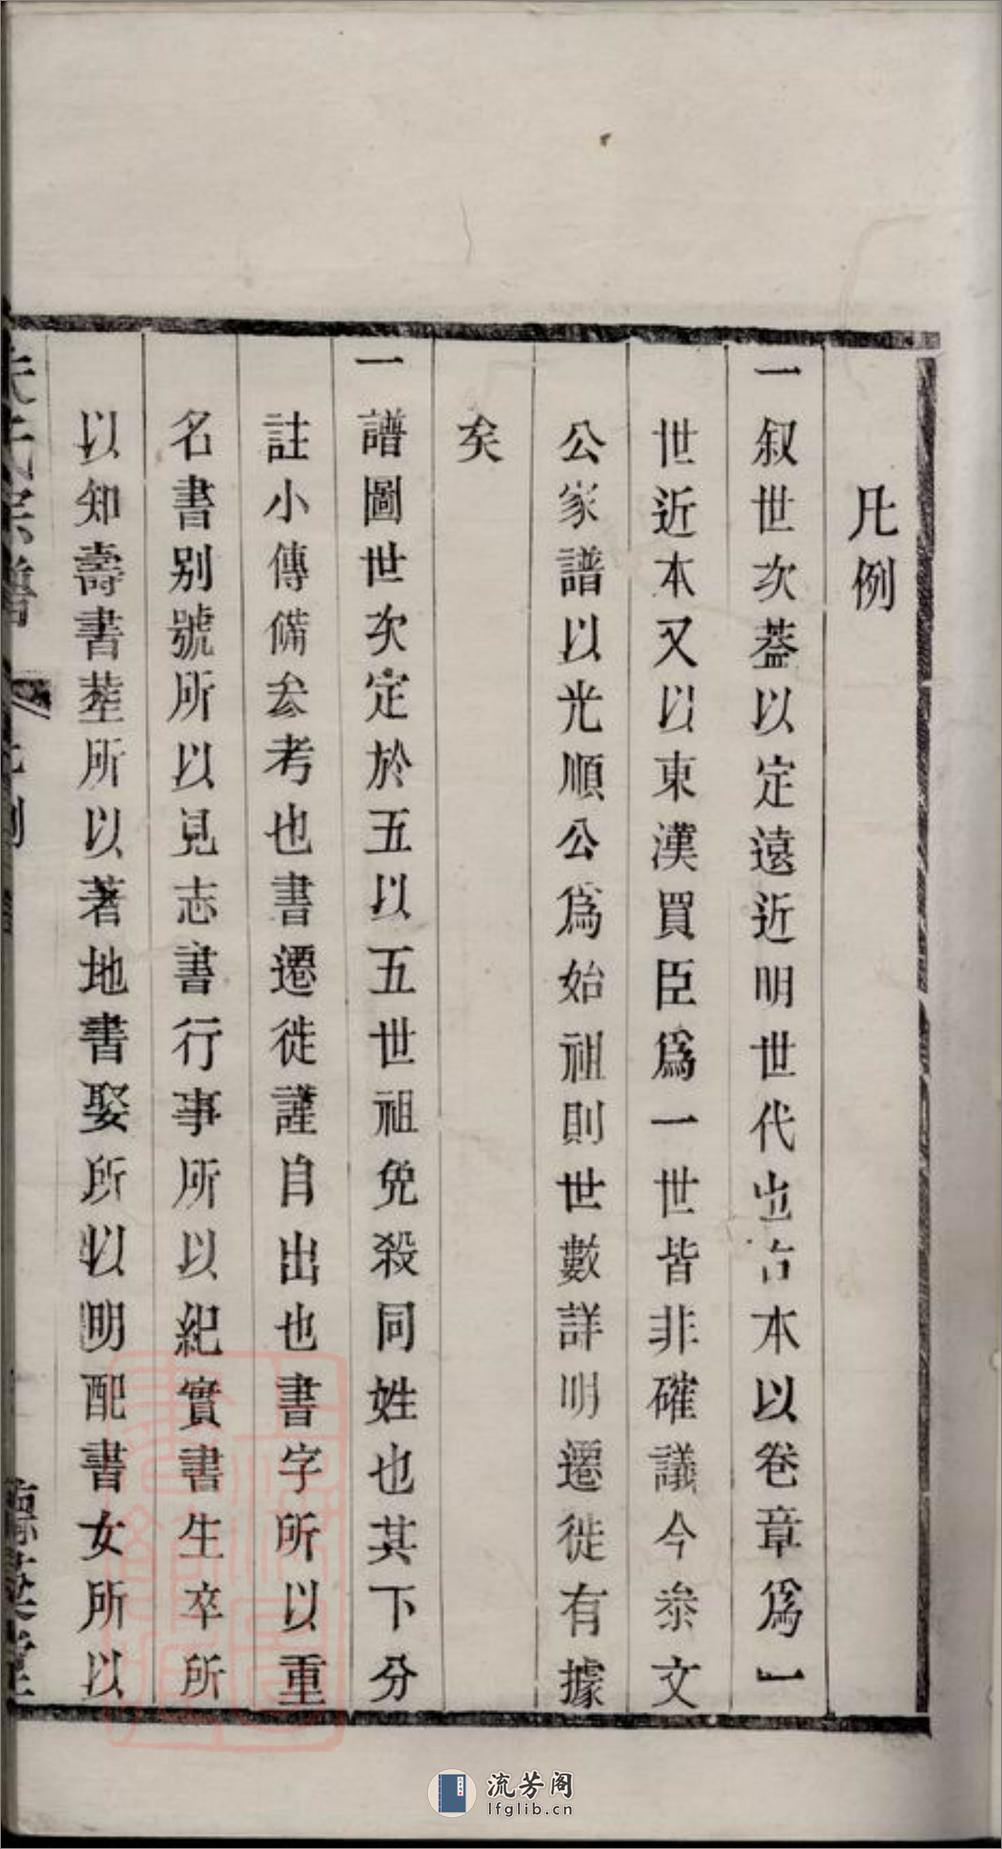 凡例
一叙世次葢以定遠近明世代也古本以卷章爲一
世近本又以東漢買臣爲一世皆非確議今叅文
公家譜以光順公爲始祖則世數詳明遷徙有據
矣
一譜圖世次定於五以五世祖免殺同姓也其下分
註小傳備叅考也書遷徙謹自出也書字所以重
名書别號所以見志書行事所以紀實書生卒所
以知壽書塟所以著地書娶所以明配書女所以
朱氏宗譜 凡例
流芳阁
lfglib.cn